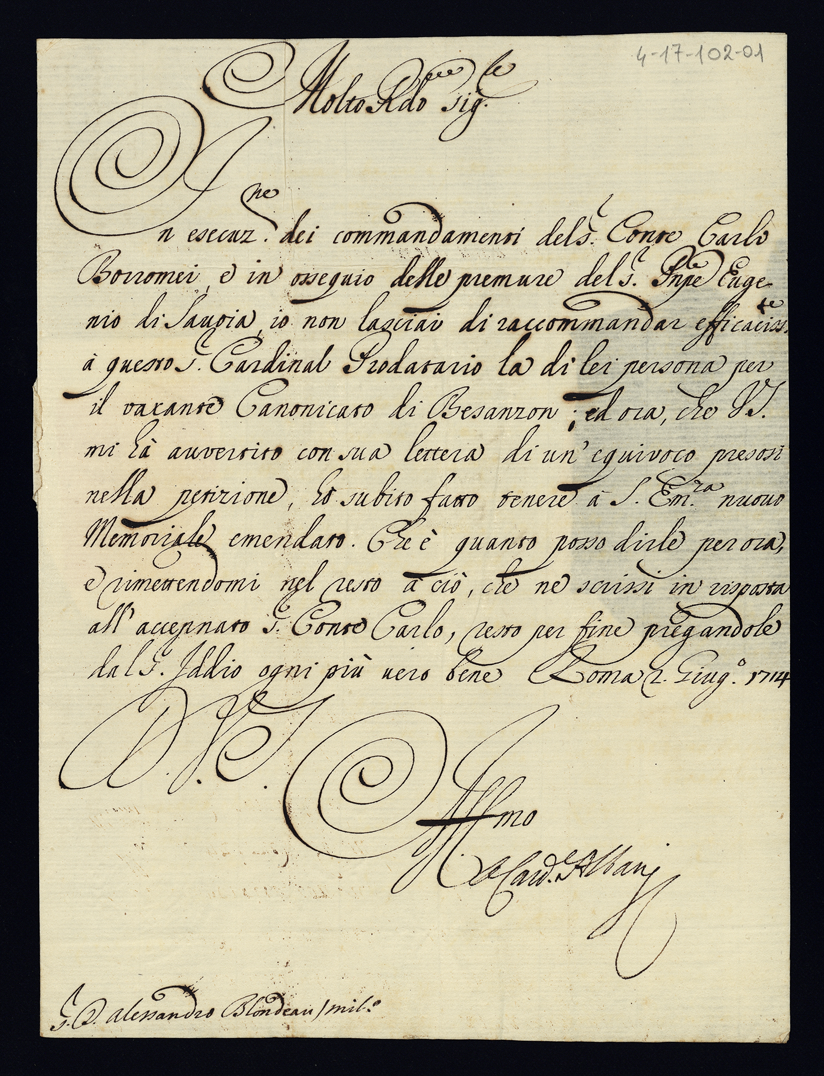 4-17-102-01
Molto Rdo Sig.re
In esecuz.ne dei commandamenti del S.r Conte Carlo
Borromei, e in ossequio delle premure del S.r Pnpe Euge-
nio di Sauoia, io non lasciai di raccommandar efficaciss.te
à questo S.r Cardinal Prodatario la di lei persona per
il vacante Canonicato di Besanzon; ed ora, che V.S.
mi hà auuertito con sua lettera di un' equivoco presosi
nella petizione, hò subito fatto tenere à S. Em.za nuouo
Memoriale emendato. Che è quanto posso dirle per ora,
e rimettendomi nel resto à ciò, che ne scrissi in risposta
all' accennato S.r Conte Carlo, resto per fine pregandole
dal S.r Iddio ogni più uero bene Roma 2. Giug.o 1714
D. V.S.
Affmo
Card.e Albani
S.r D. Alessandro Blondeau / mil.o